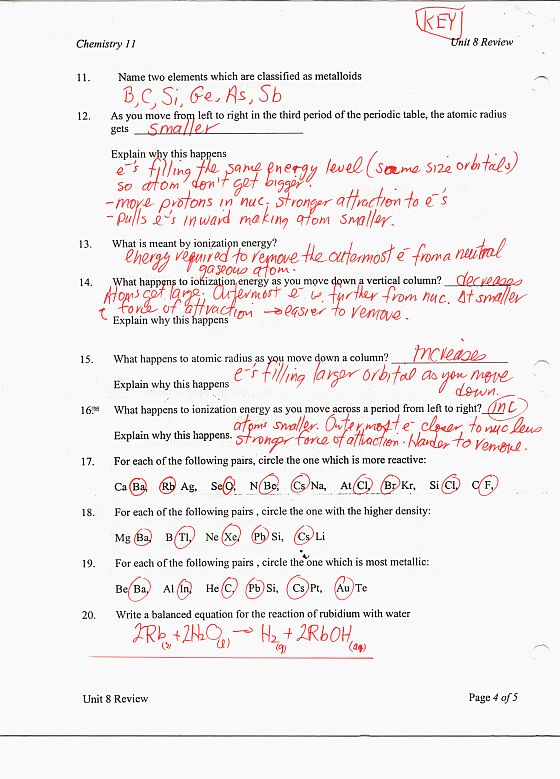 KEY
Chemistry 11 Unit 8 Review
11. Name two elements which are classified as metalloids
B, C, Si, Ge, As, Sb
12. As you move from left to right in the third period of the periodic table, the atomic radius
gets smaller
Explain why this happens
e⁻'s filling the same energy level (same size orbitals)
so atom don't get bigger.
- more protons in nuc; stronger attraction to e⁻'s
- pulls e⁻'s inward making atom smaller.
13. What is meant by ionization energy?
Energy required to remove the outermost e⁻ from a neutral
gaseous atom.
14. What happens to ionization energy as you move down a vertical column? decreases
Atoms get large. Outermost e⁻ is further from nuc. At smaller
force of attraction → easier to remove.
Explain why this happens
15. What happens to atomic radius as you move down a column? increases
Explain why this happens e⁻'s filling larger orbital as you move
down.
16. What happens to ionization energy as you move across a period from left to right? inc
atoms smaller. Outermost e⁻ closer to nucleus
Explain why this happens. stronger force of attraction. Harder to remove.
17. For each of the following pairs, circle the one which is more reactive:
Ca Ba, Rb Ag, Se O, N Be, Cs Na, At Cl, Br Kr, Si Cl, C F,
18. For each of the following pairs , circle the one with the higher density:
Mg Ba, B Tl, Ne Xe, Pb Si, Cs Li
19. For each of the following pairs , circle the one which is most metallic:
Be Ba, Al In, He C, Pb Si, Cs Pt, Au Te
20. Write a balanced equation for the reaction of rubidium with water
2Rb(s) + 2H₂O(l) → H₂(g) + 2RbOH(aq)
Unit 8 Review Page 4 of 5